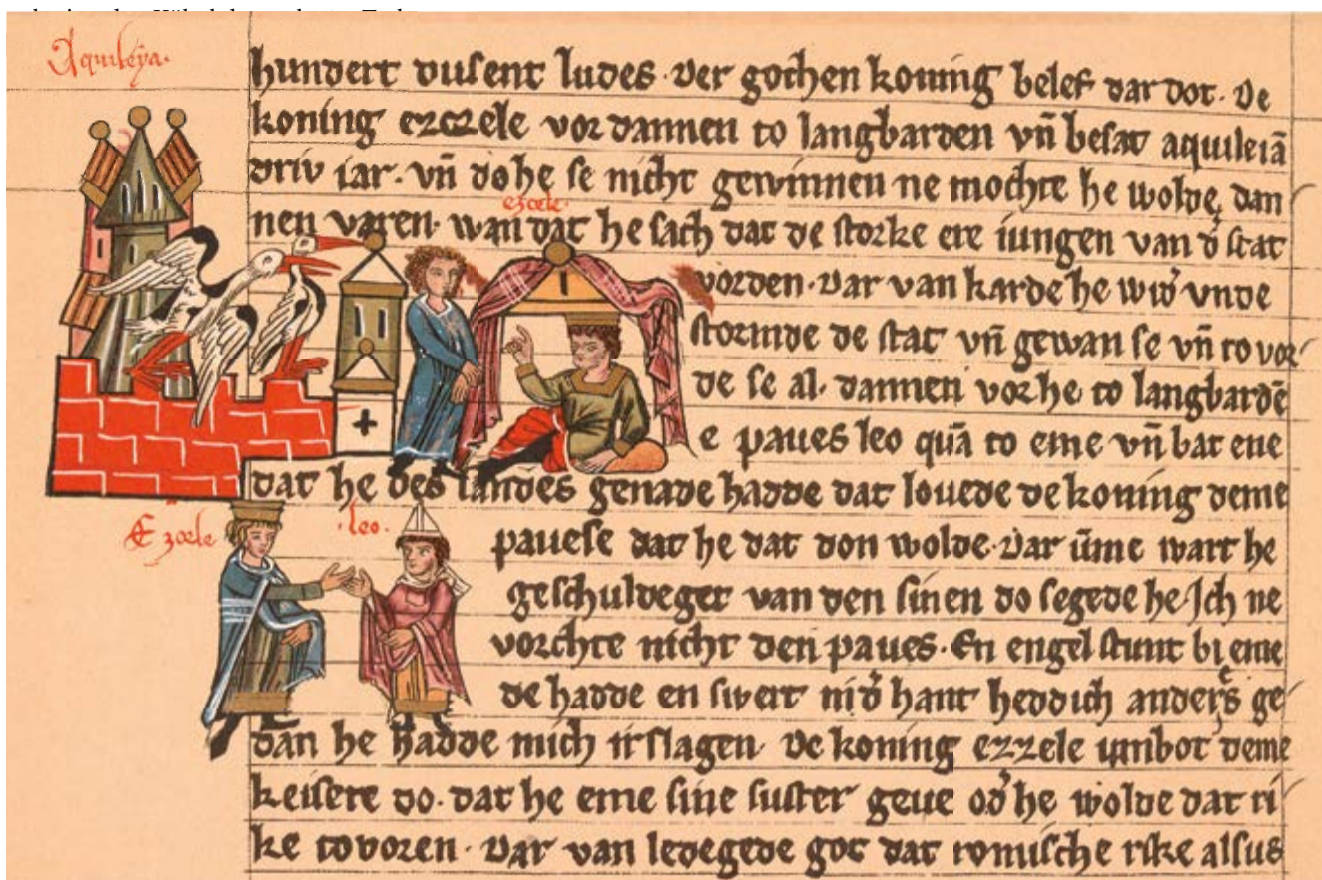 Aquileẏa.
hundert dusent ludes. Der gochen koning belef dar dot. De
koning ezczele vor dannen to langbarden vn̄ besat aquileiā
driv iar. vn̄ do he se nicht gewinnen ne mochte he wolde dan
ezcele.
nen varen. wan dat he sach dat de storke ere iungen van d' stat
vorden. Dar van karde he wid' vnde
stormde de stat vn̄ gewan se vn̄ to vor
de se al. dannen vor he to langbardē
e paues leo quā to eme vn̄ bat ene
dat he des landes genade hadde dat lovede de koning deme
Ezcele
.leo.
pauese dat he dat don wolde. Dar ūme wart he
geschuldeget van den sinen do segede he. Jch ne
vorchte nicht den paues. En engel stunt bi eme
de hadde en swert in d' hant heddich anders ge
dan he hadde mich irslagen. De koning ezzele umbot deme
keisere do. dat he eme sine suster geue od' he wolde dat ri
ke tovoren. Dar van ledegede got dat romische rike alsus